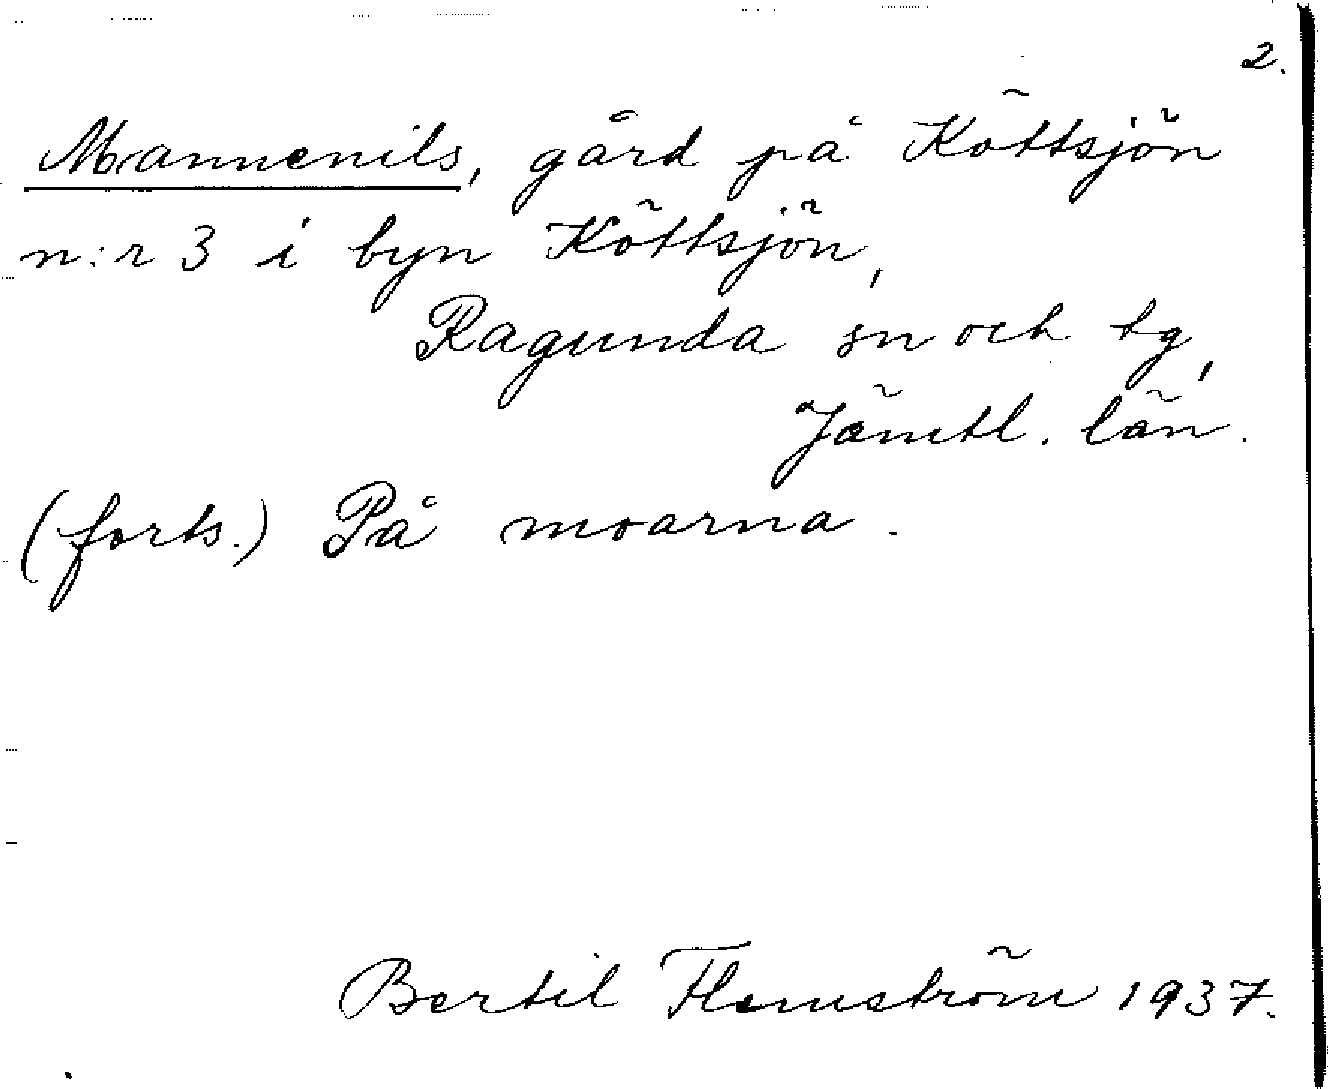 2.
Mannenils, gård på Köttsjön
n:r 3 i byn Köttsjön,
Ragunda sn och tg,
Jämtl. län.
(forts.) På moarna.
Bertil Flemström 1937.